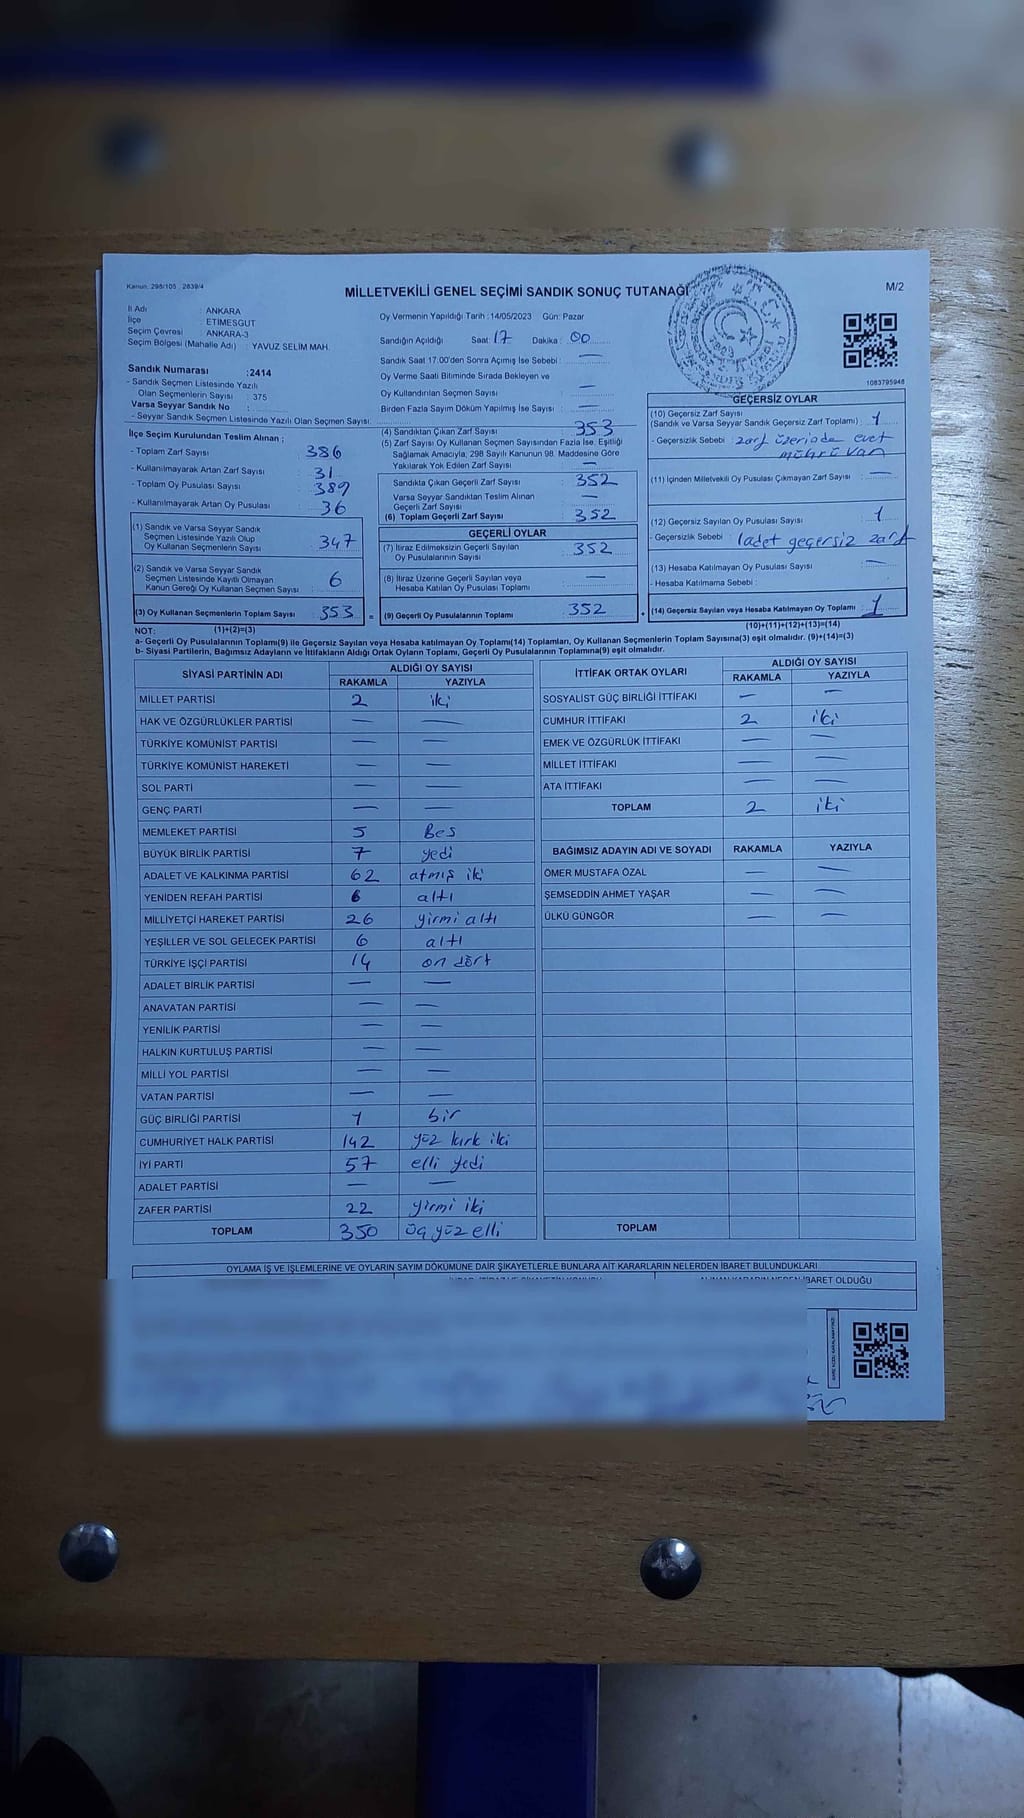 Kanun: 298/105 , 2839/4
MİLLETVEKİLİ GENEL SEÇİMİ SANDIK SONUÇ TUTANAĞI
M/2
İl Adı : ANKARA
İlçe : ETİMESGUT
Seçim Çevresi : ANKARA-3
Seçim Bölgesi (Mahalle Adı) : YAVUZ SELİM MAH.
Sandık Numarası :2414
- Sandık Seçmen Listesinde Yazılı
Olan Seçmenlerin Sayısı : 375
Varsa Seyyar Sandık No :
- Seyyar Sandık Seçmen Listesinde Yazılı Olan Seçmen Sayısı:
Oy Vermenin Yapıldığı Tarih : 14/05/2023 Gün: Pazar
Sandığın Açıldığı Saat: 17 Dakika: 00
Sandık Saat 17.00'den Sonra Açımış İse Sebebi : —
Oy Verme Saati Bitiminde Sırada Bekleyen ve
Oy Kullandırılan Seçmen Sayısı : —
Birden Fazla Sayım Döküm Yapılmış İse Sayısı : —
1083795946
İlçe Seçim Kurulundan Teslim Alınan ;
- Toplam Zarf Sayısı : 386
- Kullanılmayarak Artan Zarf Sayısı : 31
- Toplam Oy Pusulası Sayısı : 389
- Kullanılmayarak Artan Oy Pusulası : 36
(1) Sandık ve Varsa Seyyar Sandık
Seçmen Listesinde Yazılı Olup
Oy Kullanan Seçmenlerin Sayısı : 347
(2) Sandık ve Varsa Seyyar Sandık
Seçmen Listesinde Kayıtlı Olmayan
Kanun Gereği Oy Kullanan Seçmen Sayısı : 6
(3) Oy Kullanan Seçmenlerin Toplam Sayısı : 353 =
(4) Sandıktan Çıkan Zarf Sayısı : 353
(5) Zarf Sayısı Oy Kullanan Seçmen Sayısından Fazla İse, Eşitliği
Sağlamak Amacıyla, 298 Sayılı Kanunun 98. Maddesine Göre
Yakılarak Yok Edilen Zarf Sayısı : —
Sandıkta Çıkan Geçerli Zarf Sayısı : 352
Varsa Seyyar Sandıktan Teslim Alınan
Geçerli Zarf Sayısı : —
(6) Toplam Geçerli Zarf Sayısı : 352
GEÇERLİ OYLAR
(7) İtiraz Edilmeksizin Geçerli Sayılan
Oy Pusulalarının Sayısı : 352
(8) İtiraz Üzerine Geçerli Sayılan veya
Hesaba Katılan Oy Pusulası Toplamı : —
(9) Geçerli Oy Pusulalarının Toplamı : 352 +
GEÇERSİZ OYLAR
(10) Geçersiz Zarf Sayısı
(Sandık ve Varsa Seyyar Sandık Geçersiz Zarf Toplamı) : 1
- Geçersizlik Sebebi : zarf üzerinde evet
mührü var
(11) İçinden Milletvekili Oy Pusulası Çıkmayan Zarf Sayısı : —
(12) Geçersiz Sayılan Oy Pusulası Sayısı : 1
- Geçersizlik Sebebi : 1 adet geçersiz zarf
(13) Hesaba Katılmayan Oy Pusulası Sayısı : —
- Hesaba Katılmama Sebebi :
(14) Geçersiz Sayılan veya Hesaba Katılmayan Oy Toplamı : 1
NOT: (1)+(2)=(3) (10)+(11)+(12)+(13)=(14)
a- Geçerli Oy Pusulalarının Toplamı(9) ile Geçersiz Sayılan veya Hesaba katılmayan Oy Toplamı(14) Toplamları, Oy Kullanan Seçmenlerin Toplam Sayısına(3) eşit olmalıdır. (9)+(14)=(3)
b- Siyasi Partilerin, Bağımsız Adayların ve İttifakların Aldığı Ortak Oyların Toplamı, Geçerli Oy Pusulalarının Toplamına(9) eşit olmalıdır.
SİYASİ PARTİNİN ADI ALDIĞI OY SAYISI
RAKAMLA YAZIYLA
MİLLET PARTİSİ 2 iki
HAK VE ÖZGÜRLÜKLER PARTİSİ — —
TÜRKİYE KOMÜNİST PARTİSİ — —
TÜRKİYE KOMÜNİST HAREKETİ — —
SOL PARTİ — —
GENÇ PARTİ — —
MEMLEKET PARTİSİ 5 Bes
BÜYÜK BİRLİK PARTİSİ 7 yedi
ADALET VE KALKINMA PARTİSİ 62 atmış iki
YENİDEN REFAH PARTİSİ 6 altı
MİLLİYETÇİ HAREKET PARTİSİ 26 yirmi altı
YEŞİLLER VE SOL GELECEK PARTİSİ 6 altı
TÜRKİYE İŞÇİ PARTİSİ 14 on dört
ADALET BİRLİK PARTİSİ — —
ANAVATAN PARTİSİ — —
YENİLİK PARTİSİ — —
HALKIN KURTULUŞ PARTİSİ — —
MİLLİ YOL PARTİSİ — —
VATAN PARTİSİ — —
GÜÇ BİRLİĞİ PARTİSİ 1 bir
CUMHURİYET HALK PARTİSİ 142 yüz kırk iki
İYİ PARTİ 57 elli yedi
ADALET PARTİSİ — —
ZAFER PARTİSİ 22 yirmi iki
TOPLAM 350 üç yüz elli
İTTİFAK ORTAK OYLARI ALDIĞI OY SAYISI
RAKAMLA YAZIYLA
SOSYALİST GÜÇ BİRLİĞİ İTTİFAKI — —
CUMHUR İTTİFAKI 2 iki
EMEK VE ÖZGÜRLÜK İTTİFAKI — —
MİLLET İTTİFAKI — —
ATA İTTİFAKI — —
TOPLAM 2 iki
BAĞIMSIZ ADAYIN ADI VE SOYADI RAKAMLA YAZIYLA
ÖMER MUSTAFA ÖZAL — —
ŞEMSEDDİN AHMET YAŞAR — —
ÜLKÜ GÜNGÖR — —
TOPLAM
OYLAMA İŞ VE İŞLEMLERİNE VE OYLARIN SAYIM DÖKÜMÜNE DAİR ŞİKAYETLERLE BUNLARA AİT KARARLARIN NELERDEN İBARET BULUNDUKLARI
İBARET OLDUĞU